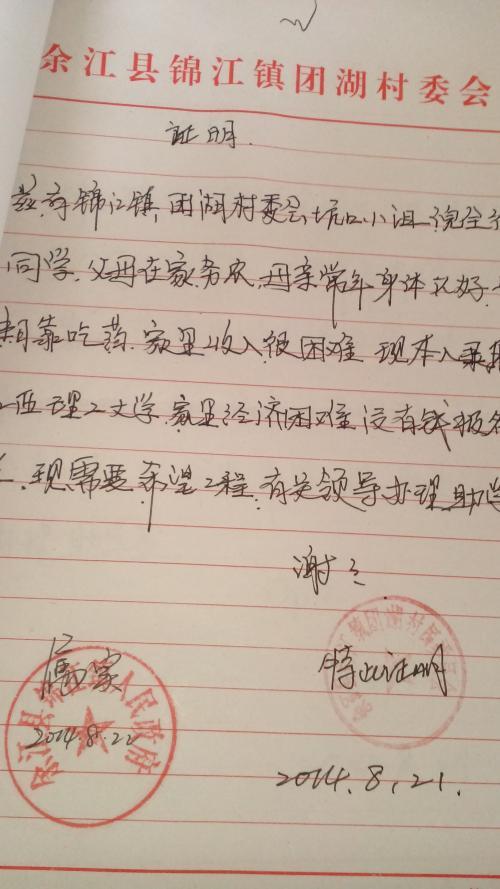 余江县锦江镇团湖村委会
证明.
兹有锦江镇,团湖村委会坑口小组倪全
同学.父母在家务农.母亲常年身体不好.
期靠吃药.家里收入很困难 现本人录取
理工大学.家里经济困难没有钱报名
现需要希望工程.有关领导办理.助学
谢之
属实 特此证明
2014.8.22
2014.8.21.
余江县锦江镇人民政府
江镇团湖村